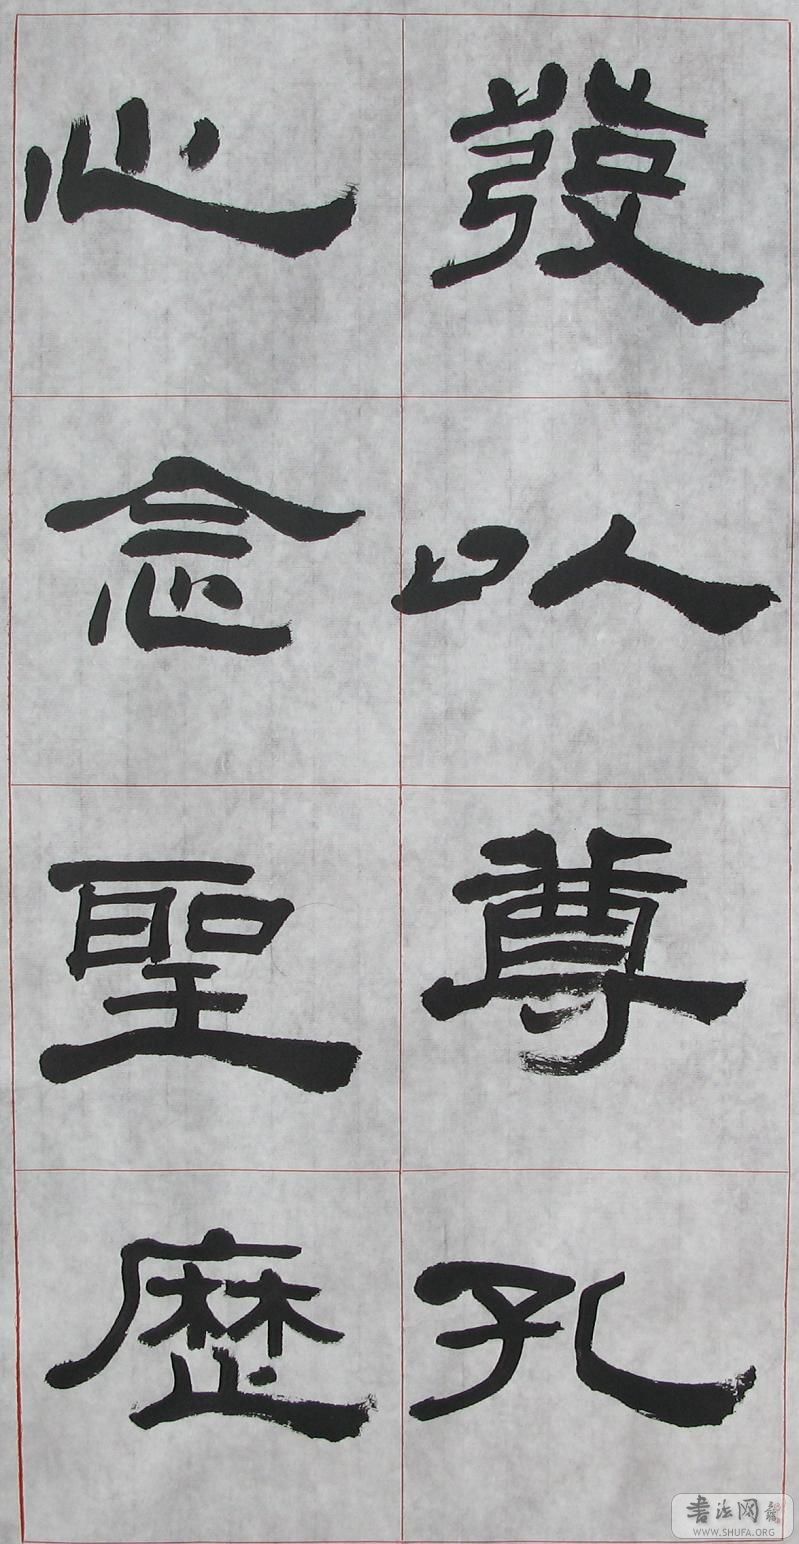 發以尊孔
心念聖歷
書法网
WWW.SHUFA.ORG